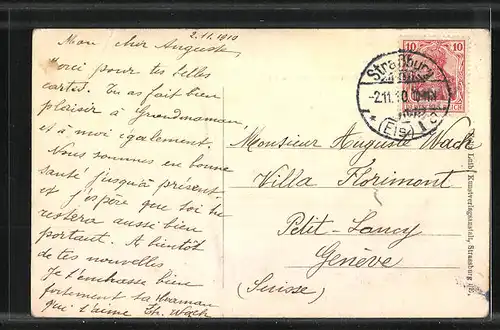 2.11.1910
Mon cher Auguste
Merci pour tes belles
cartes. Tu as fait bien
plaisir à Grandmaman
et à moi également.
Nous sommes en bonne
santé jusqu'à présent
et j'espère que toi tu
restera aussi bien
portant. A bientôt
de tes nouvelles
Je t'embrasse bien
fortement ta Maman
qui t'aime Th. Wach
10 10
Straßburg
-2.11.10
* (Els) 1 c
Monsieur Auguste Wach
Villa Florimont
Petit-Lancy
Genève
(Suisse)
Luib, Kunstverlagsanstalt, Strassburg i/E.